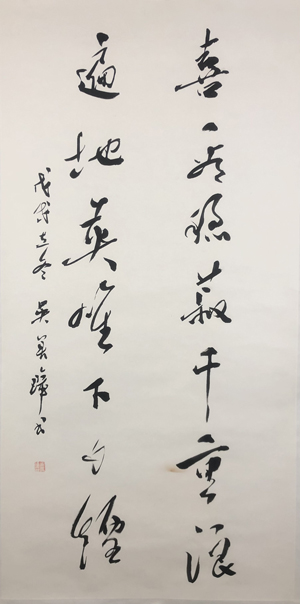 喜看稻菽千重浪
遍地英雄下夕煙
戊戌立冬 吴